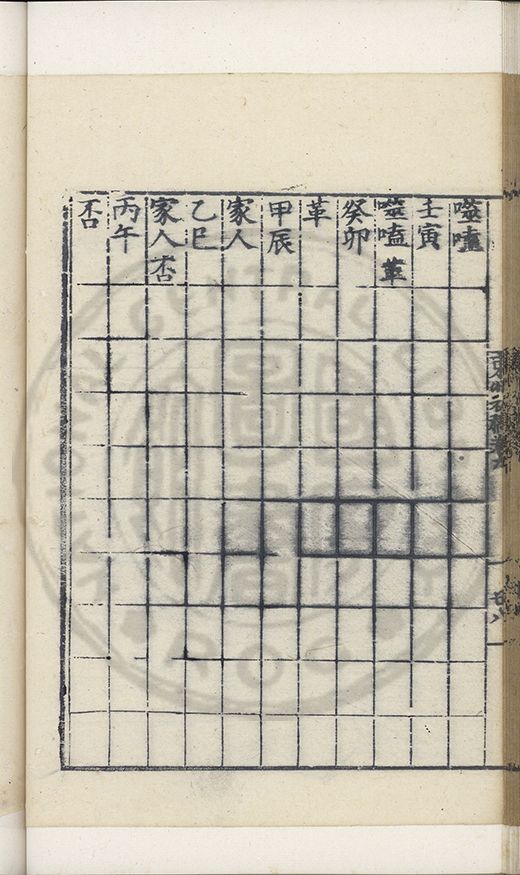 噬嗑
壬寅
噬嗑 革
癸卯
革
甲辰
家人
乙巳
家人 否
丙午
否
廿八